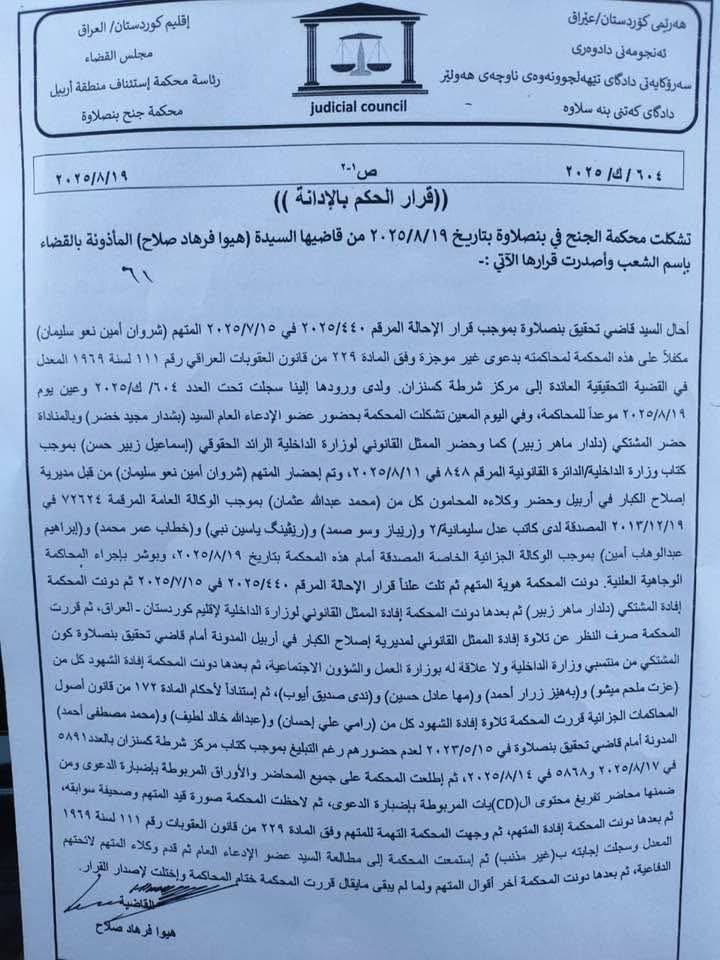 إقليم كوردستان/ العراق
مجلس القضاء
رئاسة محكمة إستئناف منطقة أربيل
محكمة جنح بنصلاوة
judicial council
هەرێمی کۆردستان/عێراق
ئەنجومەنی دادوەری
سەرۆکایەتی دادگای تێهەڵچوونەوەی ناوچەی هەولێر
دادگای کەتنی بنە سلاوە
٦٠٤/ ك/ ٢٠٢٥ ص ١-٢ ٢٠٢٥/٨/١٩
((قرار الحكم بالإدانة ))
تشكلت محكمة الجنح في بنصلاوة بتاريخ ٢٠٢٥/٨/١٩ من قاضيها السيدة (هيوا فرهاد صلاح) المأذونة بالقضاء
بإسم الشعب وأصدرت قرارها الآتي :-
٦١
أحال السيد قاضي تحقيق بنصلاوة بموجب قرار الإحالة المرقم ٢٠٢٥/٤٤٠ في ٢٠٢٥/٧/١٥ المتهم (شروان أمين نعو سليمان)
مكفلاً على هذه المحكمة لمحاكمته بدعوى غير موجزة وفق المادة ٢٢٩ من قانون العقوبات العراقي رقم ١١١ لسنة ١٩٦٩ المعدل
في القضية التحقيقية العائدة إلى مركز شرطة كسنزان. ولدى ورودها إلينا سجلت تحت العدد ٦٠٤/ ك/٢٠٢٥ وعين يوم
٢٠٢٥/٨/١٩ موعداً للمحاكمة، وفي اليوم المعين تشكلت المحكمة بحضور عضو الإدعاء العام السيد (بشدار مجيد خضر) وبالمناداة
حضر المشتكي (دلدار ماهر زبير) كما وحضر الممثل القانوني لوزارة الداخلية الرائد الحقوقي (إسماعيل زبير حسن) بموجب
كتاب وزارة الداخلية/الدائرة القانونية المرقم ٨٤٨ في ٢٠٢٥/٨/١١، وتم إحضار المتهم (شروان أمين نعو سليمان) من قبل مديرية
إصلاح الكبار في أربيل وحضر وكلاءه المحامون كل من (محمد عبدالله عثمان) بموجب الوكالة العامة المرقمة ٧٢٦٢٤ في
٢٠١٣/١٢/١٩ المصدقة لدى كاتب عدل سليمانية/٢ و(رێباز وسو صمد) و(رێڤینگ ياسين نبي) و(خطاب عمر محمد) و(إبراهيم
عبدالوهاب أمين) بموجب الوكالة الجزائية الخاصة المصدقة أمام هذه المحكمة بتاريخ ٢٠٢٥/٨/١٩، وبوشر بإجراء المحاكمة
الوجاهية العلنية. دونت المحكمة هوية المتهم ثم تلت علناً قرار الإحالة المرقم ٢٠٢٥/٤٤٠ في ٢٠٢٥/٧/١٥ ثم دونت المحكمة
إفادة المشتكي (دلدار ماهر زبير) ثم بعدها دونت المحكمة إفادة الممثل القانوني لوزارة الداخلية لإقليم كوردستان - العراق، ثم قررت
المحكمة صرف النظر عن تلاوة إفادة الممثل القانوني لمديرية إصلاح الكبار في أربيل المدونة أمام قاضي تحقيق بنصلاوة كون
المشتكي من منتسبي وزارة الداخلية ولا علاقة له بوزارة العمل والشؤون الاجتماعية، ثم بعدها دونت المحكمة إفادة الشهود كل من
(عزت ملحم ميشو) و(بەهێز زرار أحمد) و(مها عادل حسين) و(ندى صديق أيوب)، ثم إستناداً لأحكام المادة ١٧٢ من قانون أصول
المحاكمات الجزائية قررت المحكمة تلاوة إفادة الشهود كل من (رامي علي إحسان) و(عبدالله خالد لطيف) و(محمد مصطفى أحمد)
المدونة أمام قاضي تحقيق بنصلاوة في ٢٠٢٣/٥/١٥ لعدم حضورهم رغم التبليغ بموجب كتاب مركز شرطة كسنزان بالعدد ٥٨٩١
في ٢٠٢٥/٨/١٧ و٥٨٦٨ في ٢٠٢٥/٨/١٤، ثم إطلعت المحكمة على جميع المحاضر والأوراق المربوطة بإضبارة الدعوى ومن
ضمنها محاضر تفريغ محتوى ال(CD)يات المربوطة بإضبارة الدعوى، ثم لاحظت المحكمة صورة قيد المتهم وصحيفة سوابقه،
ثم بعدها دونت المحكمة إفادة المتهم، ثم وجهت المحكمة التهمة للمتهم وفق المادة ٢٢٩ من قانون العقوبات رقم ١١١ لسنة ١٩٦٩
المعدل وسجلت إجابته ب(غير مذنب) ثم إستمعت المحكمة إلى مطالعة السيد عضو الإدعاء العام ثم قدم وكلاء المتهم لائحتهم
الدفاعية، ثم بعدها دونت المحكمة آخر أقوال المتهم ولما لم يبقى مايقال قررت المحكمة ختام المحاكمة وإختلت لإصدار القرار.
القاضية
هيوا فرهاد صلاح